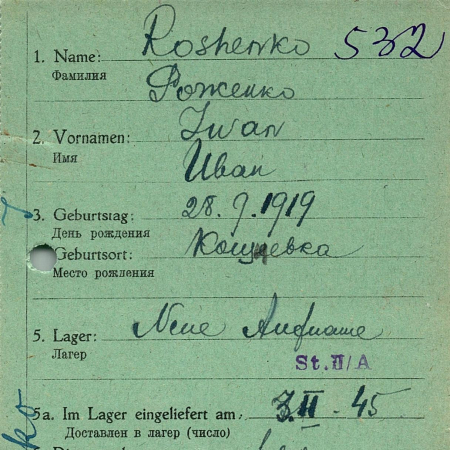 1. Name: Roshenko 532
Фамилия Роженко
2. Vornamen: Iwan
Имя Иван
3. Geburtstag: 28.9.1919
День рождения
Geburtsort:
Место рождения
5. Lager: Neue Aufname
Лагерь St.II/A
5a. Im Lager eingeliefert am: II-45
Доставлен в лагерь (число)